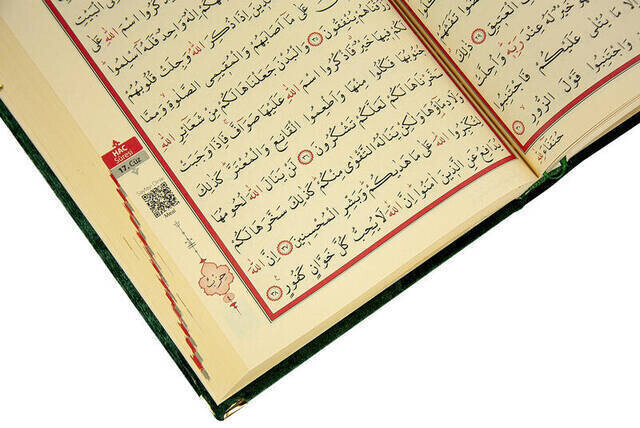 تَفَثَهُمْ
الْعَتِيقِ ٢٩ ذٰلِكَ
خَيْرٌ لَهُ عِنْدَ رَبِّهِ وَاُحِلَّتْ
مَا يُتْلٰى عَلَيْكُمْ فَاجْتَنِبُوا
وَاجْتَنِبُوا قَوْلَ الزُّورِ ٣٠
حُنَفَاءَ لِلّٰهِ
الْبَيْتِ
كُرُوا اسْمَ اللّٰهِ عَلٰى
وَاحِدٌ فَلَهُ اَسْلِمُوا
الَّذِينَ اِذَا ذُكِرَ اللّٰهُ وَجِلَتْ قُلُوبُهُمْ
عَلٰى مَا اَصَابَهُمْ وَالْمُقِيمِي الصَّلٰوةِ وَمِمَّا
يُنْفِقُونَ ٣٥ وَالْبُدْنَ جَعَلْنَاهَا لَكُمْ مِنْ شَعَائِرِ اللّٰهِ
لَكُمْ فِيهَا خَيْرٌ فَاذْكُرُوا اسْمَ اللّٰهِ عَلَيْهَا صَوَافَّ فَاِذَا وَجَبَتْ
جُنُوبُهَا فَكُلُوا مِنْهَا وَاَطْعِمُوا الْقَانِعَ وَالْمُعْتَرَّ كَذٰلِكَ
سَخَّرْنَاهَا لَكُمْ لَعَلَّكُمْ تَشْكُرُونَ ٣٦ لَنْ يَنَالَ اللّٰهَ لُحُومُهَا
وَلَا دِمَاؤُهَا وَلٰكِنْ يَنَالُهُ التَّقْوٰى مِنْكُمْ كَذٰلِكَ سَخَّرَهَا لَكُمْ
لِتُكَبِّرُوا اللّٰهَ عَلٰى مَا هَدٰيكُمْ وَبَشِّرِ الْمُحْسِنِينَ ٣٧ اِنَّ اللّٰهَ
يُدَافِعُ عَنِ الَّذِينَ اٰمَنُوا اِنَّ اللّٰهَ لَا يُحِبُّ كُلَّ خَوَّانٍ كَفُورٍ ٣٨
HAC
Sûresi
17. Cüz
Meal
حزب